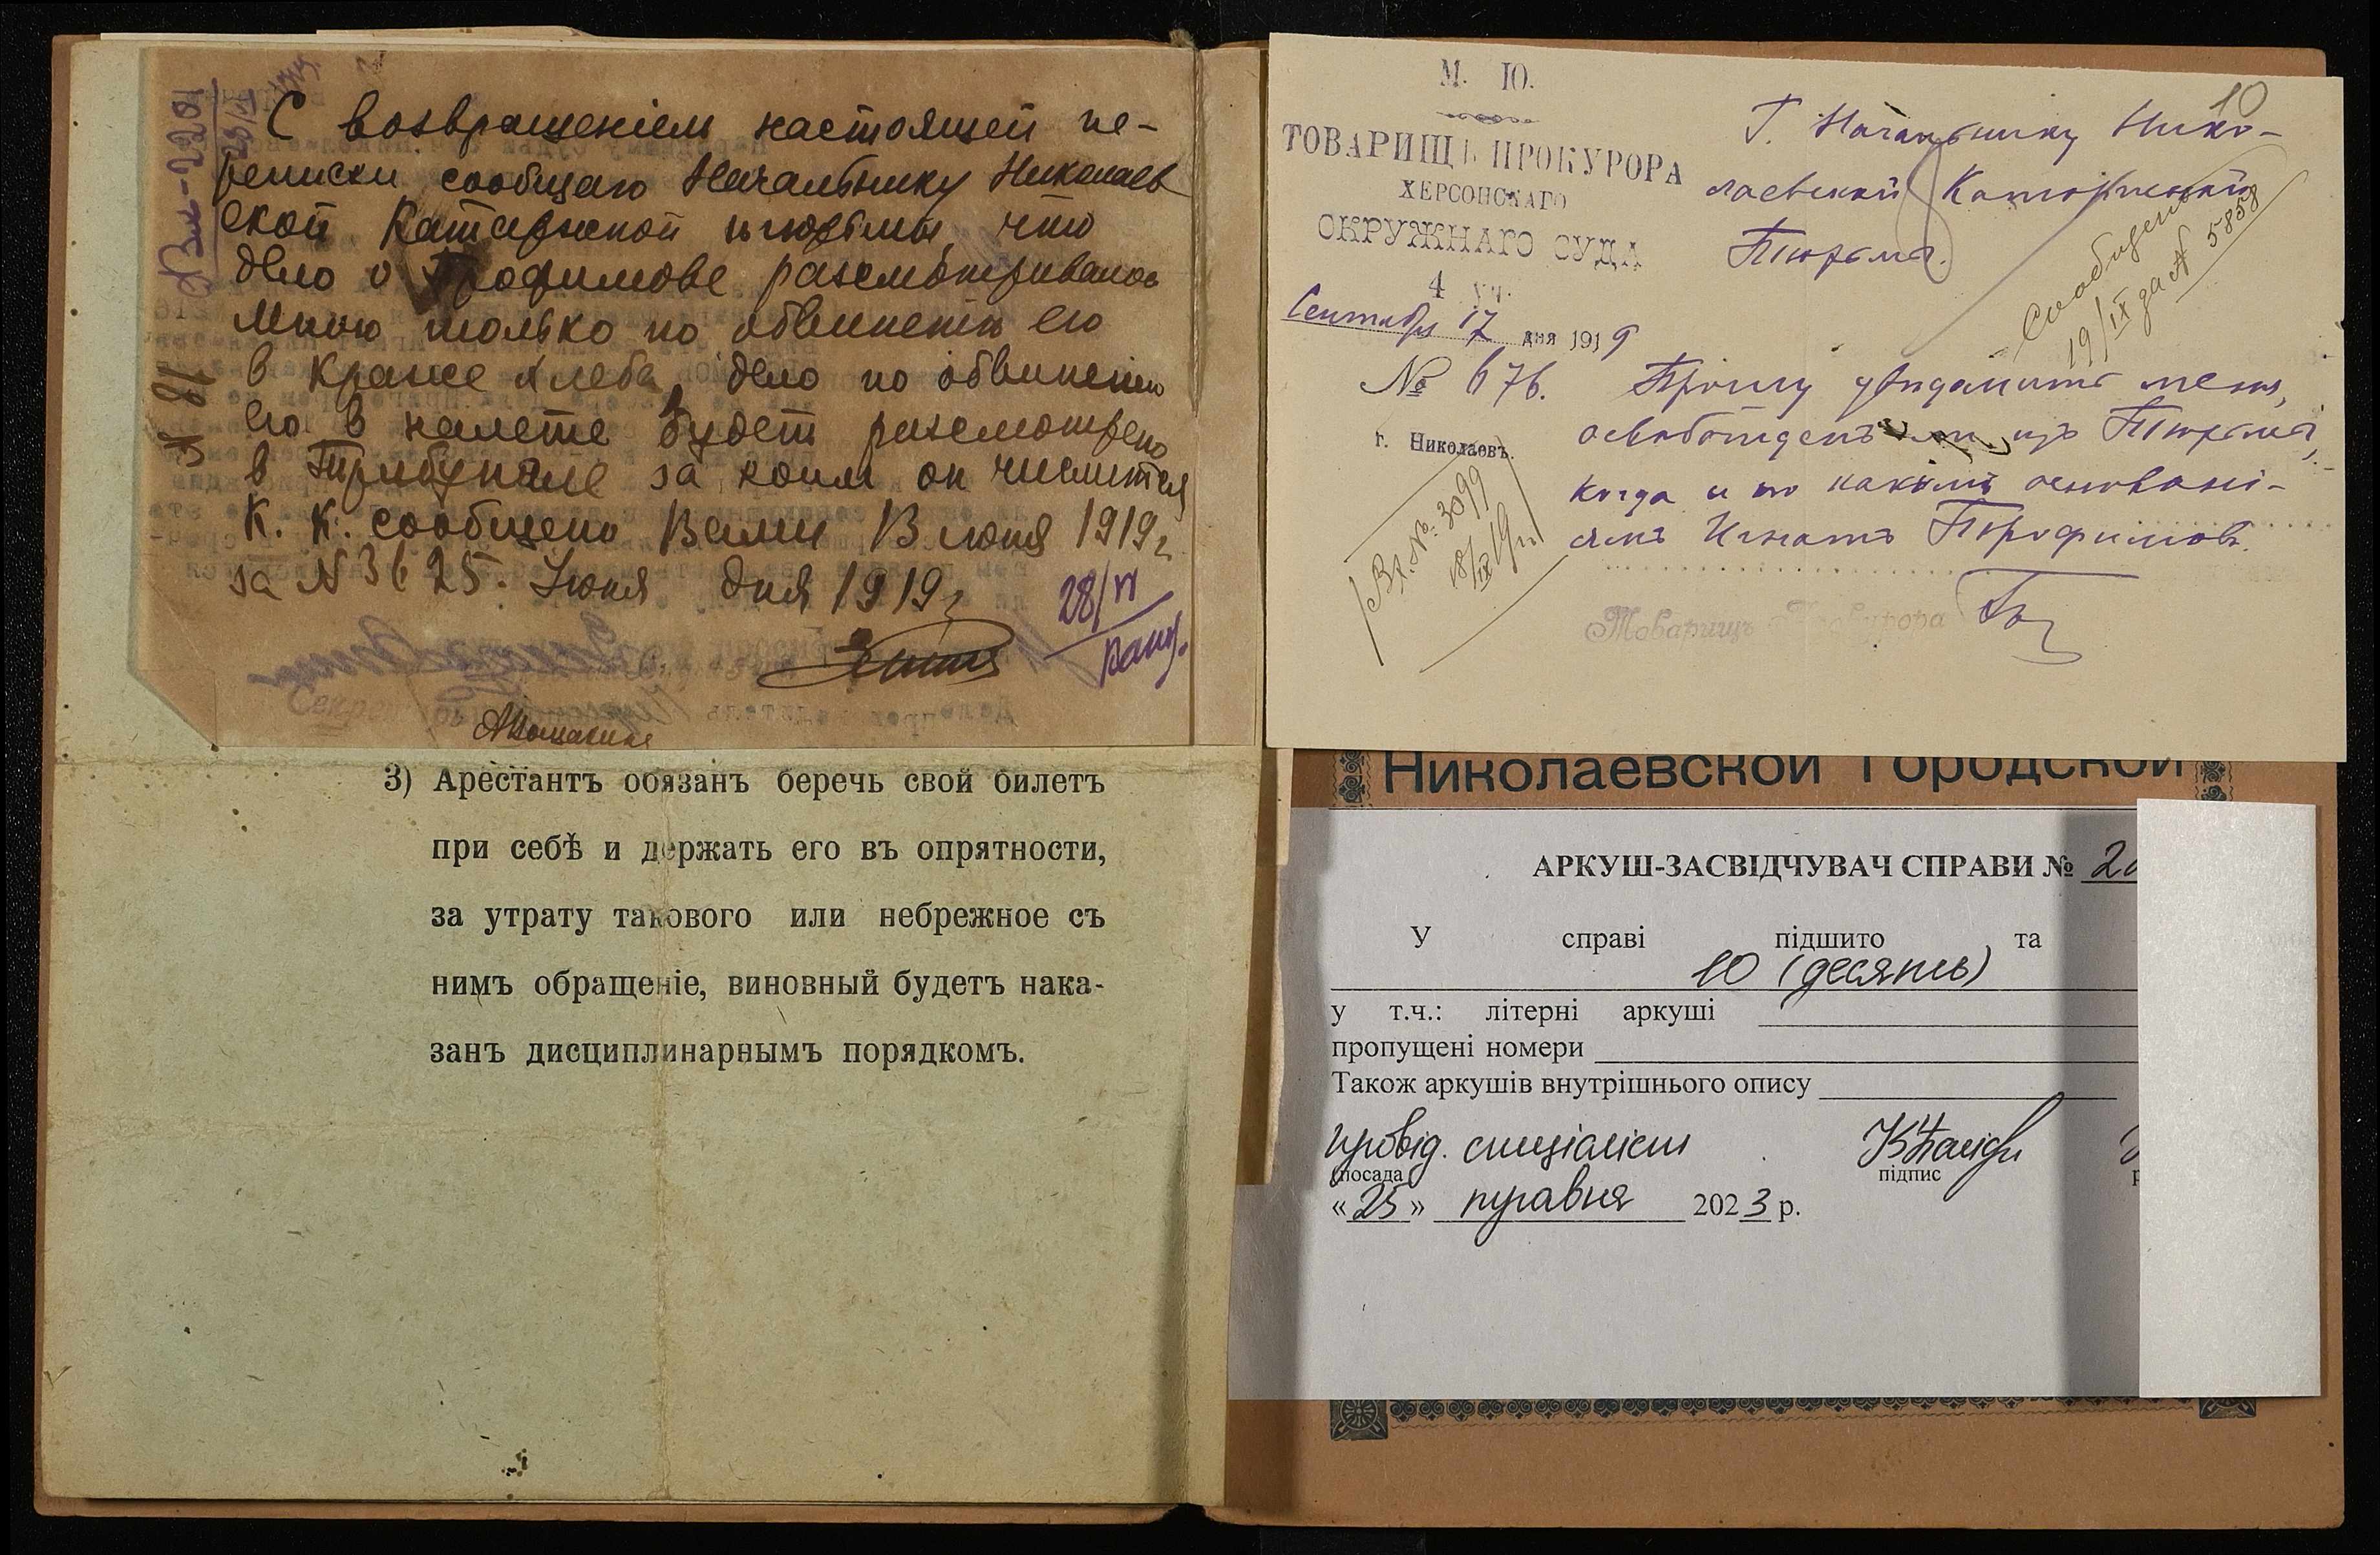 С возвращением настоящей пе-
реписки сообщаю Начальнику Николаев
ской Каторжной тюрьмы, что
дело о Трофимове разсматривалось
мною только по обвинению его
в краже хлеба, дело по обвинению
его в налете будет разсмотрено
в Трибунале за коим он числится
К. К. сообщено Вами 13 июня 1919 г
за N 3625. Июня дня 1919 г
28/VI
N 81
3) Арестантъ обязанъ беречь свой билетъ
при себѣ и держать его въ опрятности,
за утрату такового или небрежное съ
нимъ обращеніе, виновный будетъ нака-
занъ дисциплинарнымъ порядкомъ.
М. Ю.
ТОВАРИЩЪ ПРОКУРОРА
ХЕРСОНСКАГО
ОКРУЖНАГО СУДА
4 уч.
Сентября 17 дня 1919
№ 676.
г. Николаевъ.
Вх. №. 3099
18/IX 19 г.
10
Г. Начальнику Нико-
лаевской Каторжной
Тюрьмы.
Сообщено
19/IX за N 5858
Прошу увѣдомить меня,
освобожденъ ли изъ Тюрьмы,
когда и по какимъ основані-
ямъ Игнатъ Трофимовъ.
Товарищъ Прокурора
Николаевской Городской
АРКУШ-ЗАСВІДЧУВАЧ СПРАВИ №
У справі підшито та
10 (десять)
у т.ч.: літерні аркуші
пропущені номери
Також аркушів внутрішнього опису
провід. спеціаліст
посада підпис
«25» травня 2023 р.